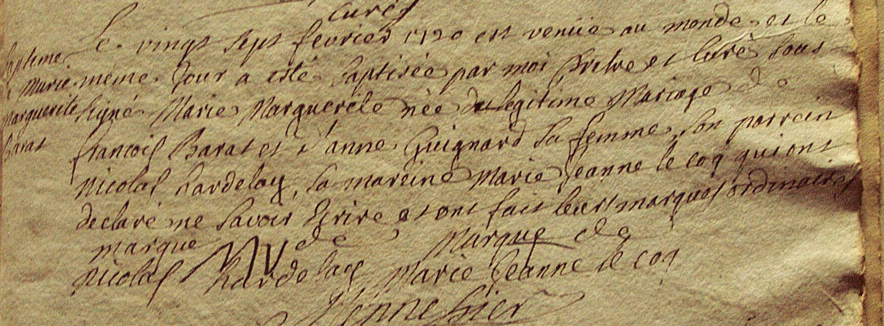 curé
Le vingt sept fevrier 1720 est venüe au monde et le
meme jour a esté baptisée par moi Prêtre et Curé sous
signé Marie Marguerete née de legitime Mariage de
francois Barat et d'anne Guignard sa femme, son parrein
Nicolas hardelay, sa mareine Marie Jeanne le coq qui ont
declaré ne savoir Ecrire et ont fait leurs marques ordinaires
marque de Marque de
Nicolas hardelay Marie Jeanne le coq
Baptême
Marie
Marguerete
Barat